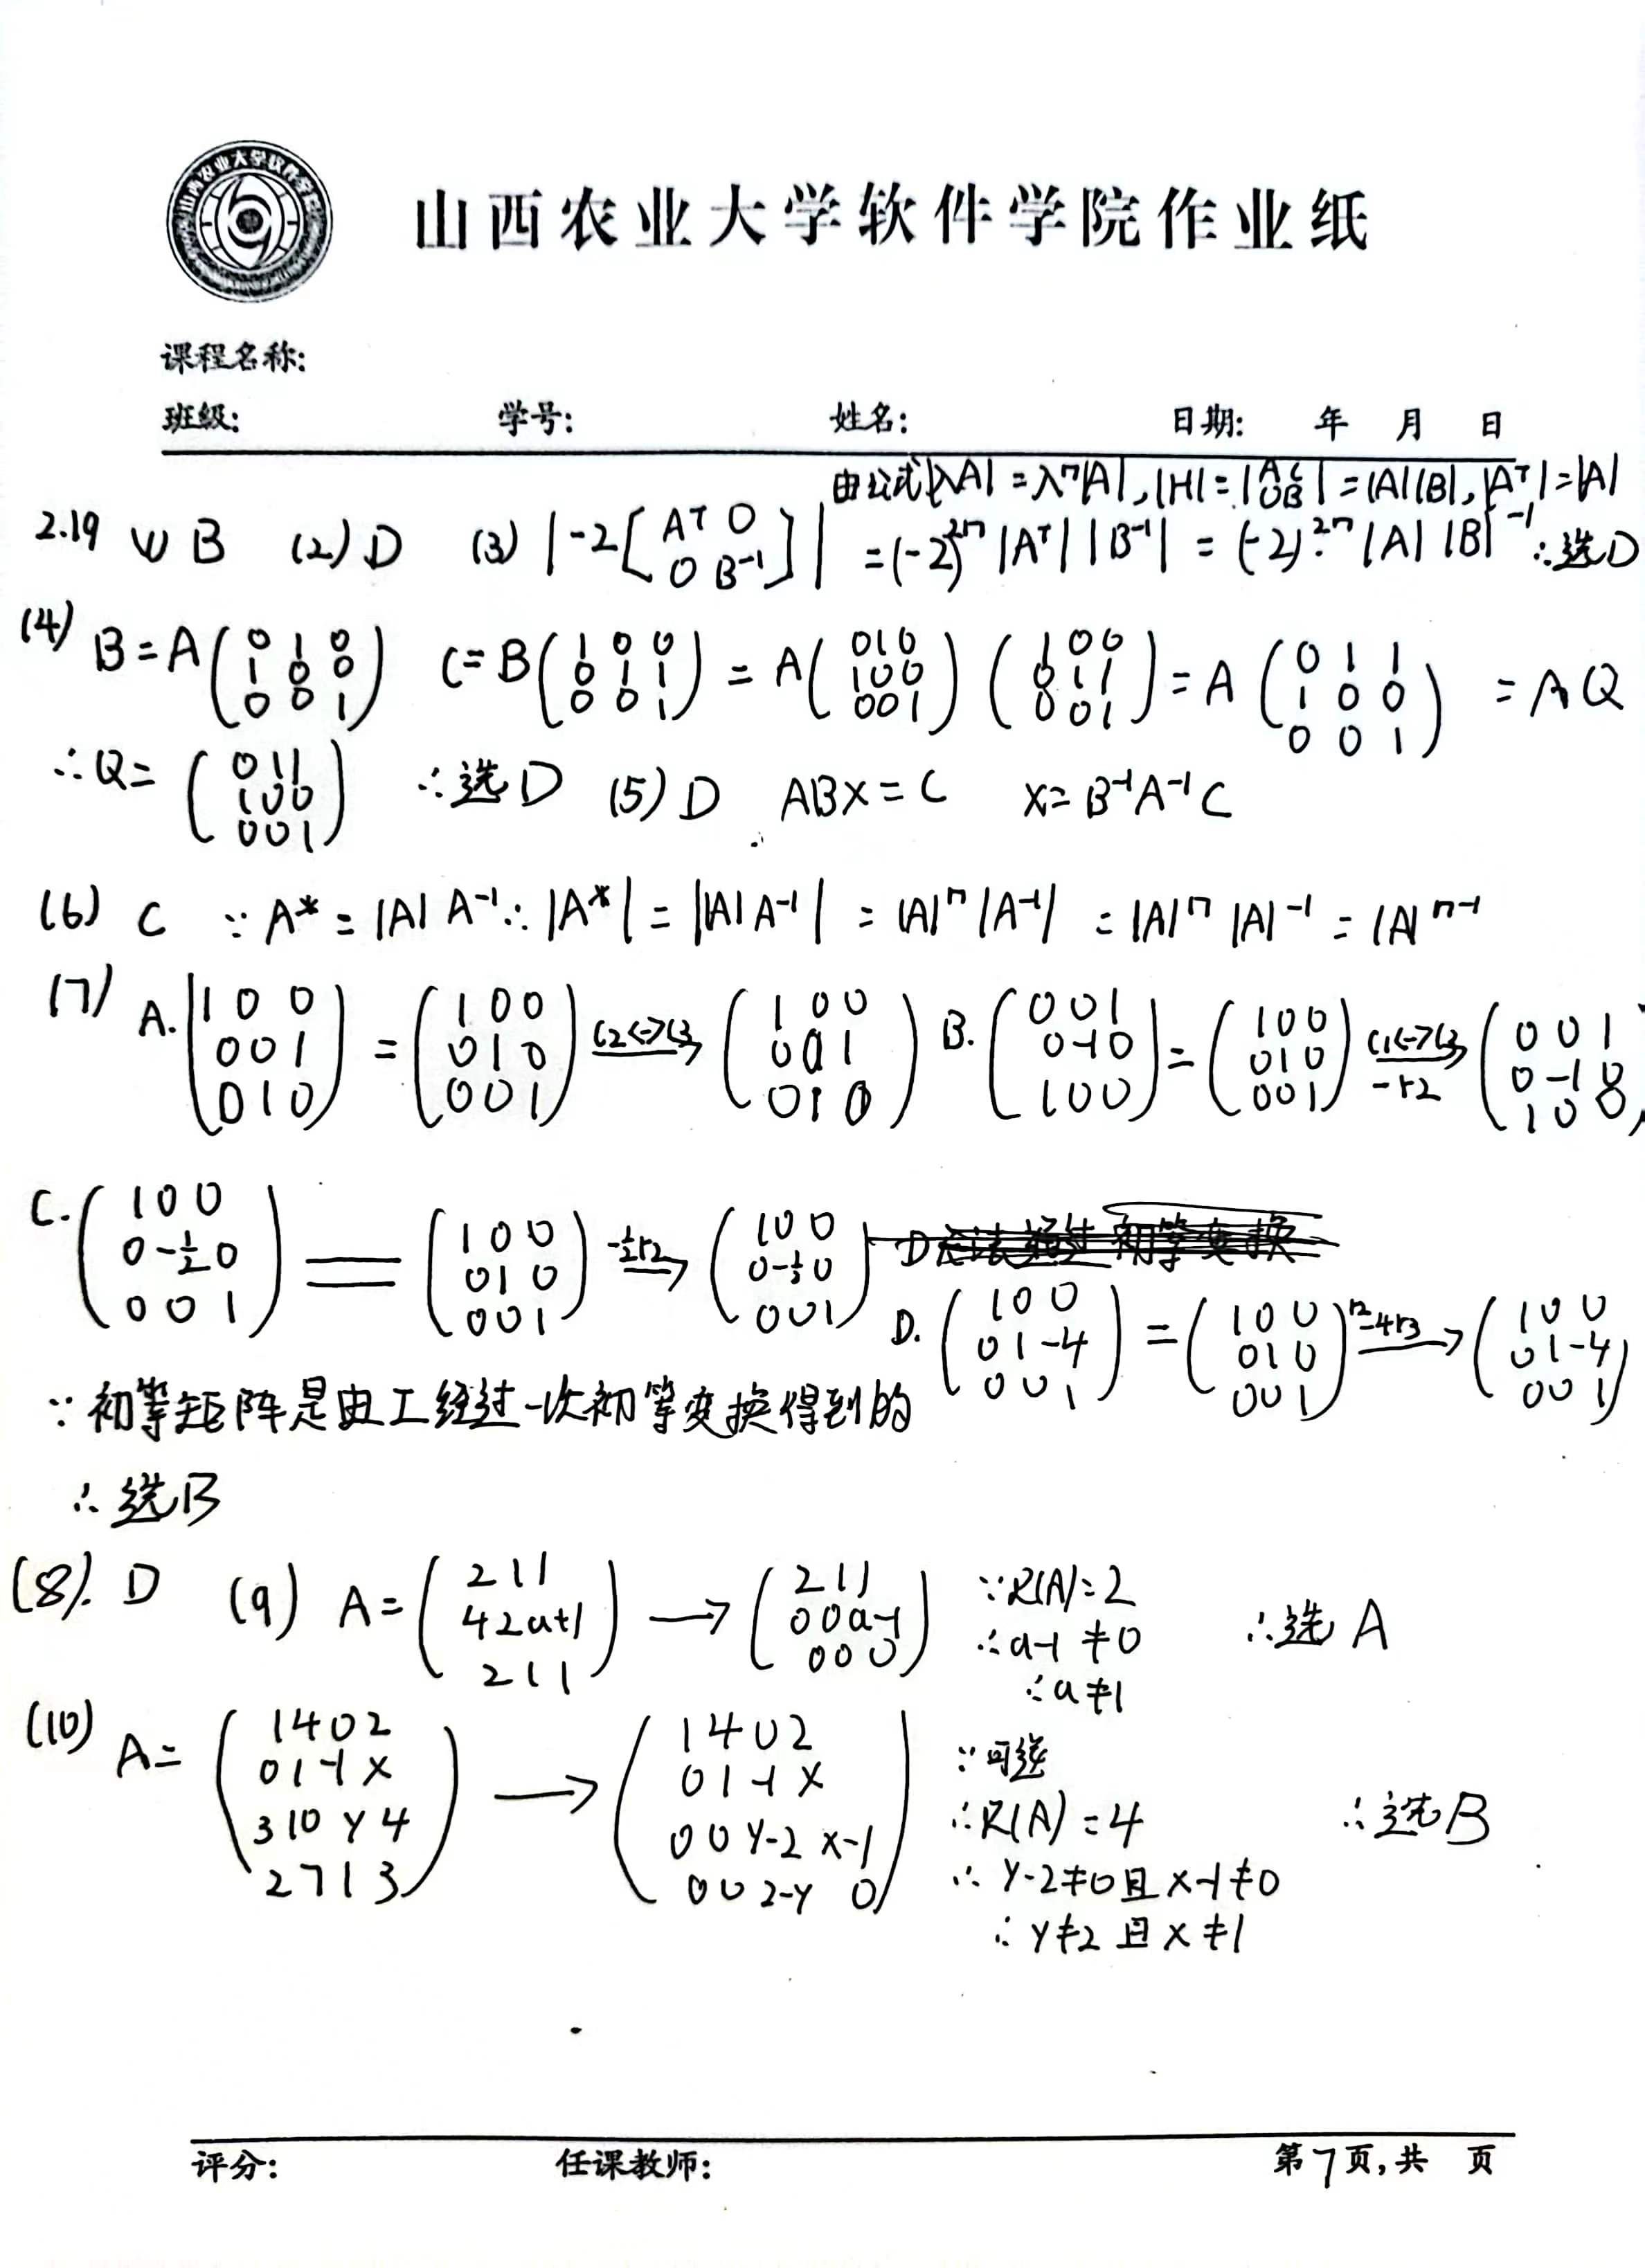 山西农业大学软件学院作业纸
课程名称:
班级: 学号: 姓名: 日期: 年 月 日
由公式|λA|=λⁿ|A|, |H|=|A C; 0 B|=|A||B|, |Aᵀ|=|A|
2.19 (1) B (2) D (3) |-2[Aᵀ 0; 0 B⁻¹]| = (-2)²ⁿ|Aᵀ||B⁻¹| = (-2)²ⁿ|A||B|⁻¹ ∴选D
(4) B=A(0 1 0; 1 0 0; 0 0 1) C=B(1 0 0; 0 1 1; 0 0 1) = A(0 1 0; 1 0 0; 0 0 1)(1 0 0; 0 1 1; 0 0 1) = A(0 1 1; 1 0 0; 0 0 1) = AQ
∴Q=(0 1 1; 1 0 0; 0 0 1) ∴选D (5) D ABX=C X=B⁻¹A⁻¹C
(6) C ∵A*=|A|A⁻¹ ∴|A*|=||A|A⁻¹|=|A|ⁿ|A⁻¹|=|A|ⁿ|A|⁻¹=|A|ⁿ⁻¹
(7) A.(1 0 0; 0 0 1; 0 1 0) = (1 0 0; 0 1 0; 0 0 1) c2<->c3→ (1 0 0; 0 0 1; 0 1 0) B.(0 0 1; 0 -1 0; 1 0 0) = (1 0 0; 0 1 0; 0 0 1) c1<->c3 -r2→ (0 0 1; 0 -1 0; 1 0 0)
C.(1 0 0; 0 -½ 0; 0 0 1) = (1 0 0; 0 1 0; 0 0 1) -½r2→ (1 0 0; 0 -½ 0; 0 0 1)
D.(1 0 0; 0 1 -4; 0 0 1) = (1 0 0; 0 1 0; 0 0 1) r2-4r3→ (1 0 0; 0 1 -4; 0 0 1)
∵初等矩阵是由I经过一次初等变换得到的
∴选B
(8). D (9) A=(2 1 1; 4 2 a+1; 2 1 1) → (2 1 1; 0 0 a-1; 0 0 0) ∵R(A)=2 ∴a-1≠0 ∴a≠1 ∴选A
(10) A=(1 4 0 2; 0 1 -1 x; 3 10 y 4; 2 7 1 3) → (1 4 0 2; 0 1 -1 x; 0 0 y-2 x-1; 0 0 2-y 0) ∵可逆 ∴R(A)=4 ∴y-2≠0且x-1≠0 ∴y≠2且x≠1 ∴选B
评分: 任课教师: 第7页,共 页